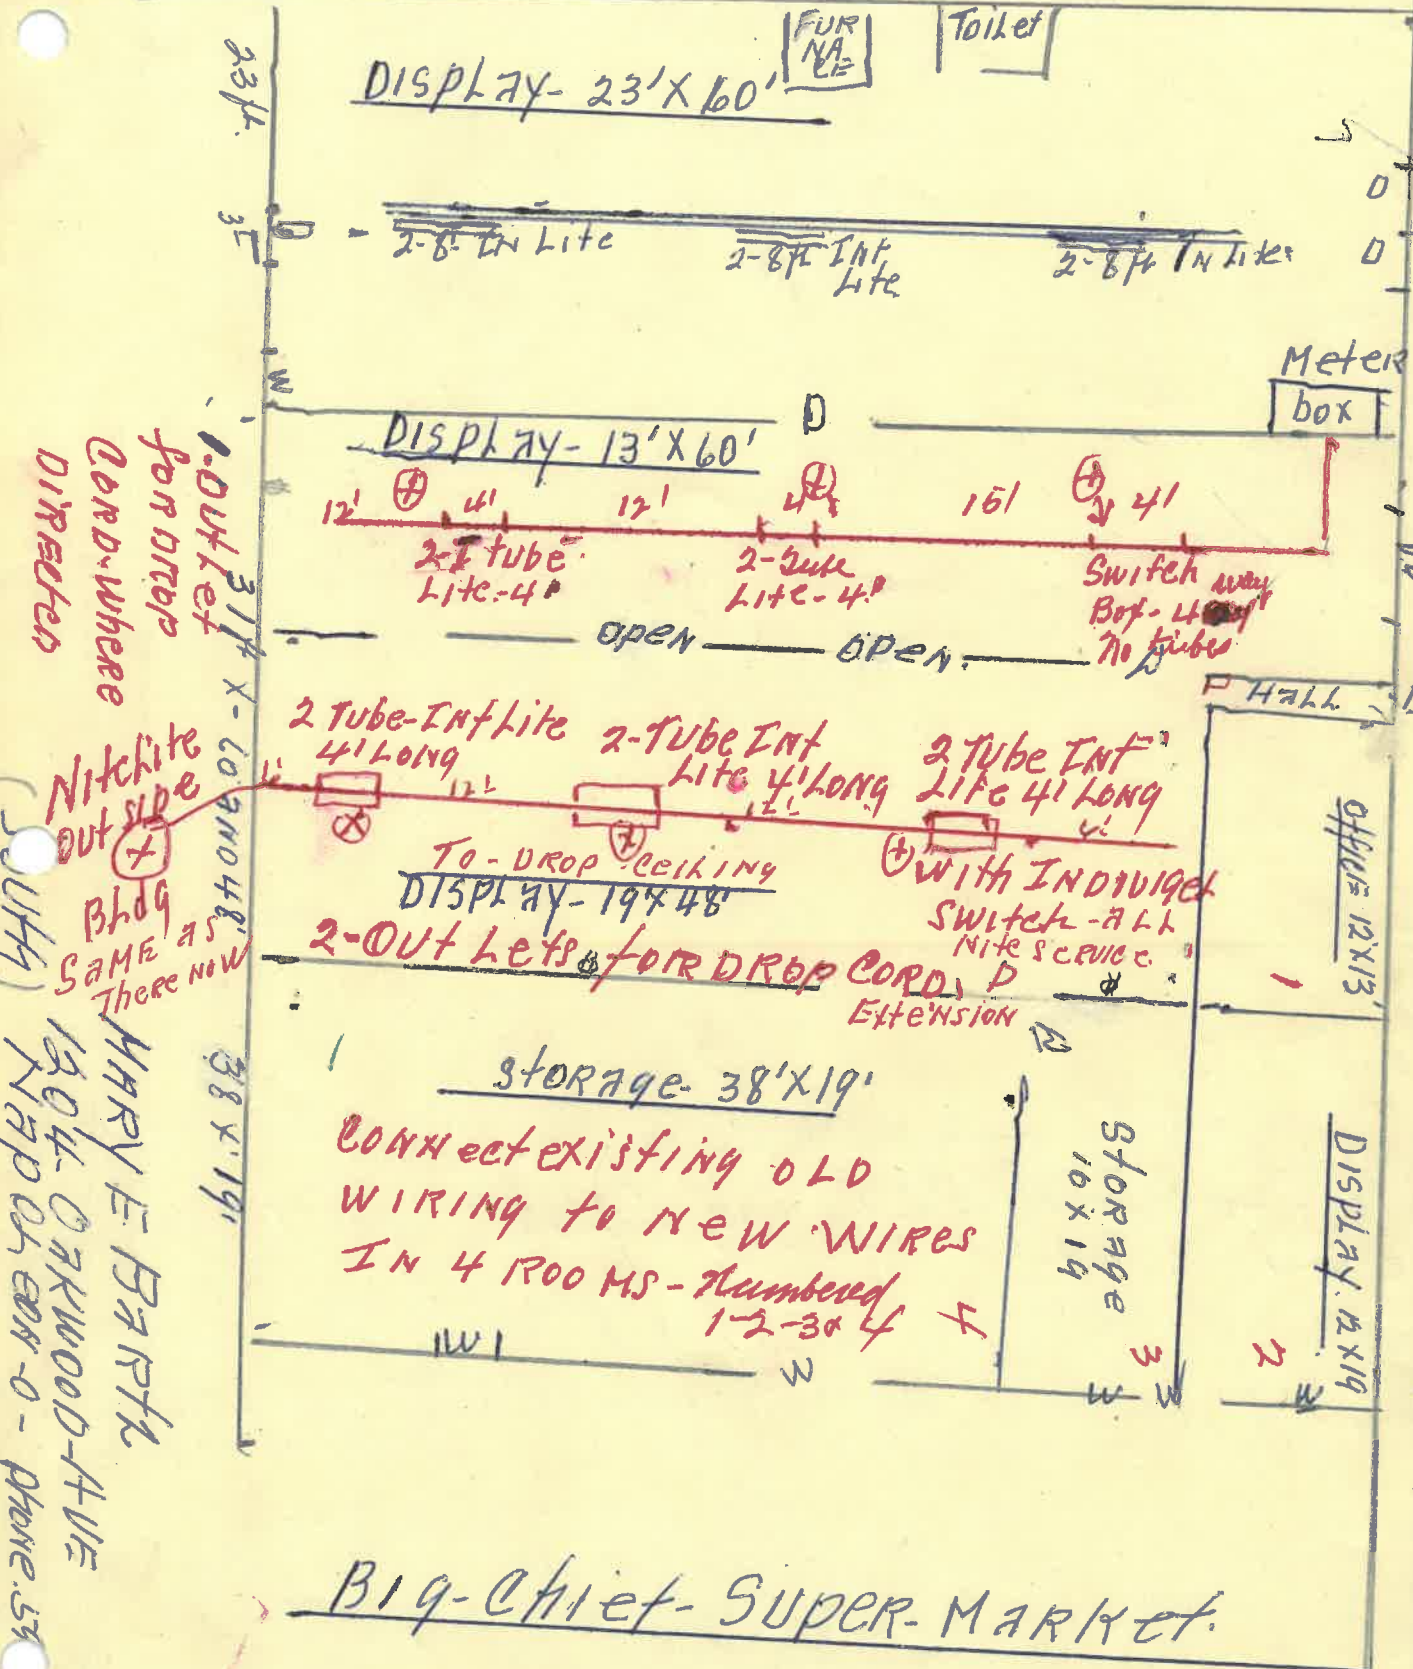 FUR
NA
CE
Toilet
DISPLAY- 23'X60'
23ft.
D
2-8' IN Lite
2-8ft INT
Lite
2-8ft IN Lite
D
D
W
Meter
box
D
DISPLAY- 13'X60'
12'
4'
12'
4'
15'
4'
2-I tube
Lite-4'
2-Tube
Lite-4'
Switch
Box- 4
No tubes
1-OUTLet
for DROP
CORD-WHERE
DIRECTED
31ft X-60 AND 48'
OPEN
OPEN.
HALL
2 Tube-INT Lite
4' LONG
2-Tube INT
Lite 4' LONG
2 Tube INT
Lite 4' LONG
12'
12'
4'
Nitelite
OUT SIDE
Bldg
SAME AS
There NOW
TO-DROP CEILING
DISPLAY-19X48'
With INDIVIGEL
SWITCH-ALL
Nite SERVICE
2-OUT LETS for DROP CORD.
EXTENSION
D
OFFICE 12X13'
1
38 X 19'
STORAGE- 38'X19'
CONNECT EXISTING OLD
WIRING TO NEW WIRES
IN 4 ROOMS-Numbered
1-2-3 & 4
4
Storage
10X19
3
Display. 12X19
2
W
3
W
3
W
(SOUTH)
MARY E BARTH
1204-OAKWOOD-AVE
NAPOLEON-O- PHONE.59
BIG-Chief-SUPER-MARKET.